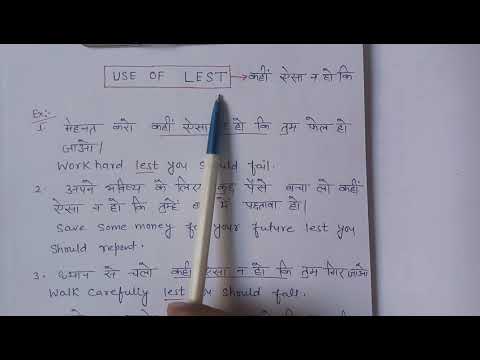 USE OF LEST → कहीं ऐसा न हो कि
Ex:-
1. मेहनत करो कहीं ऐसा न हो कि तुम फेल हो
जाओ।
Work hard lest you should fail.
2. अपने भविष्य के लिए कुछ पैसे बचा लो कहीं
ऐसा न हो कि तुम्हें में पछतावा हो।
Save some money for your future lest you
should repent.
3. ध्यान से चलो कहीं ऐसा न हो कि तुम गिर जाओ
Walk carefully lest you should fall.